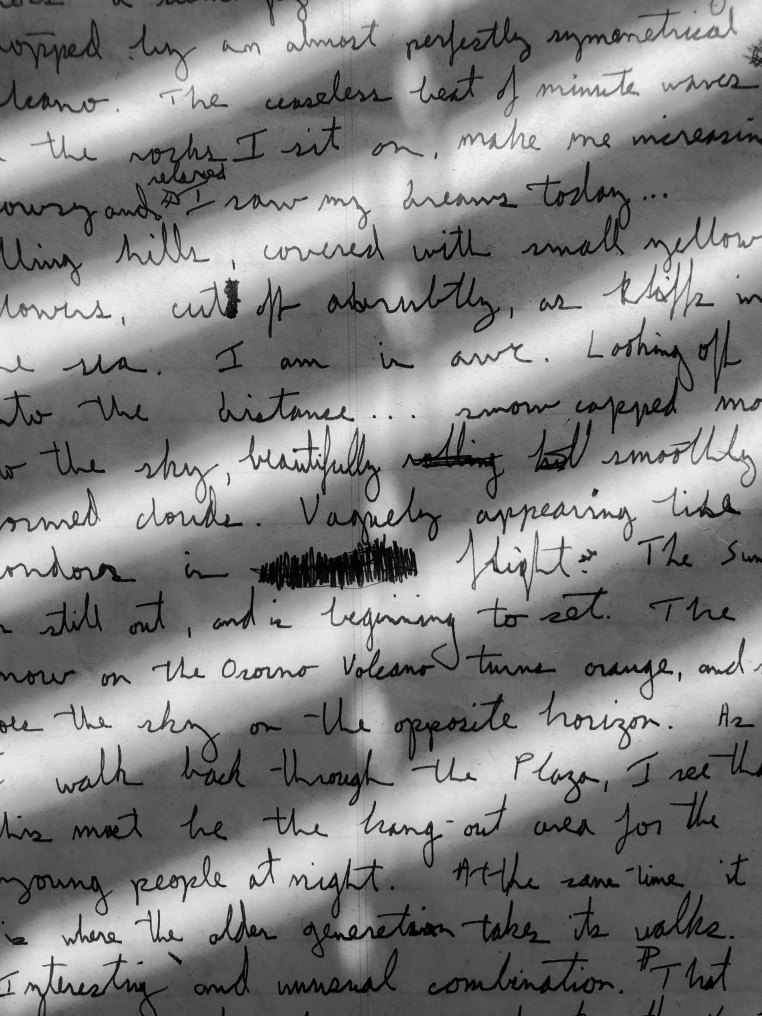 opped by an almost perfectly symmetrical
lcano. The ceaseless beat of minute waves
the rocks I sit on, make me increasin
relaxed
owsy and I saw my dreams today...
lling hills, covered with small yellow
lowers, cut off abrubtly, as kliffs in
he sea. I am in awe. Looking off
nto the distance... snow capped mo
w the sky, beautifully rolling but smoothly
ormed clouds. Vaguely appearing like
ondors in flight. The Sun
is still out, and is beginning to set. The
now on the Osorno Volcano turns orange, and s
oes the sky on the opposite horizon. As
I walk back through the Plaza, I see tha
this must be the hang-out area for the
young people at night. At the same time it
is where the older generation takes its walks.
Interesting and unusual combination. That